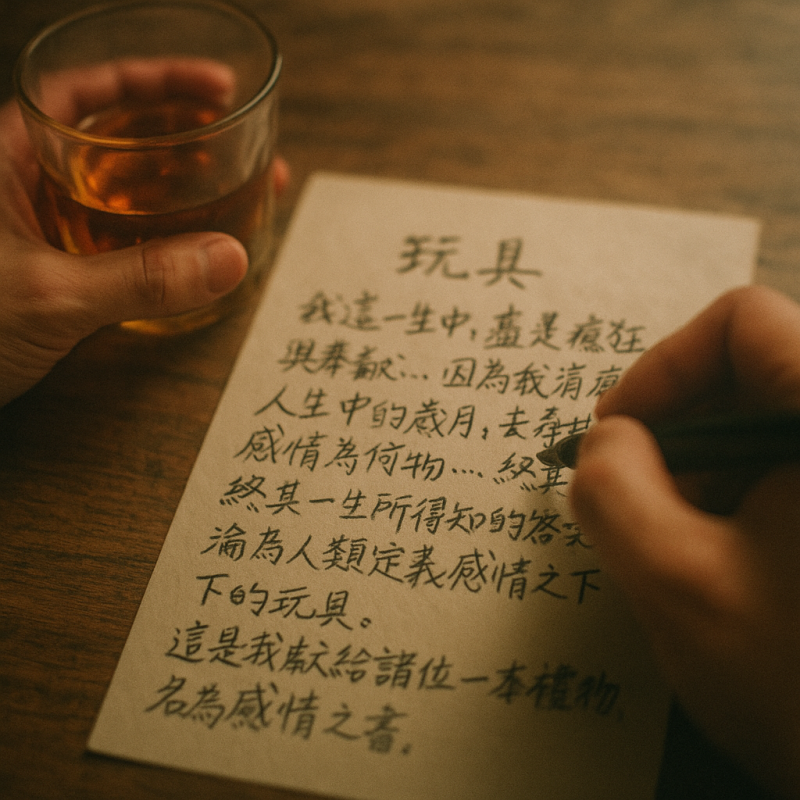 玩具
我這一生中，盡是瘋狂
與奉獻… 因為我清
人生中的歲月，去尋
感情為何物…. 終其
終其一生所得知的答案
淪為人類定義感情之下
下的玩具。
這是我獻給諸位一本禮物，
名為感情之書。